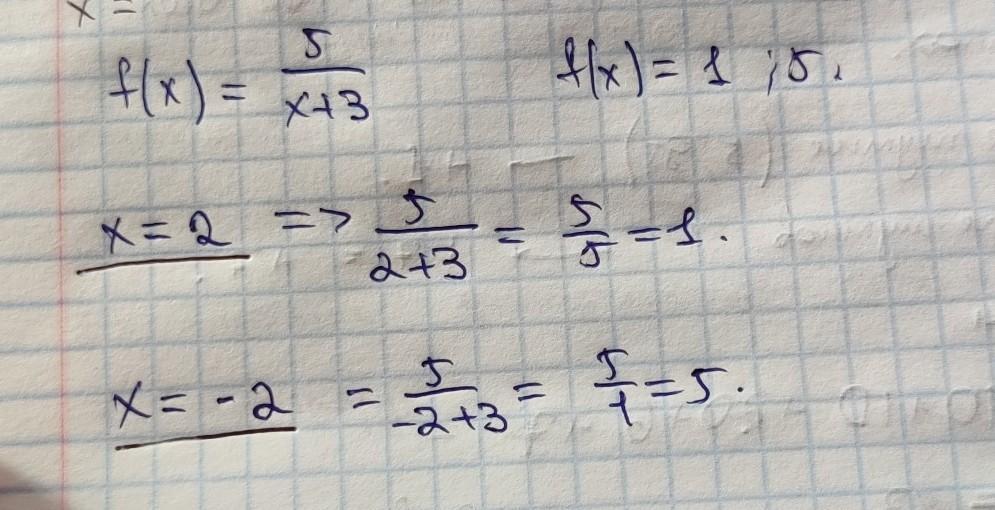 x =
f(x) = 5/(x+3) f(x) = 1 ; 5.
x = 2 => 5/(2+3) = 5/5 = 1.
x = -2 = 5/(-2+3) = 5/1 = 5.